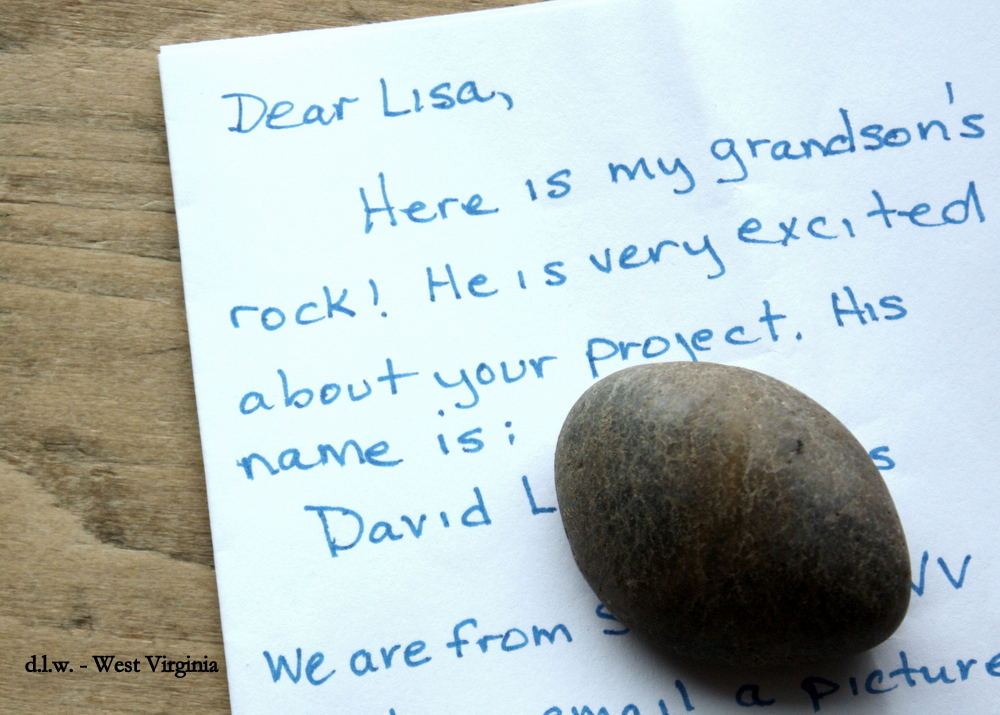 Dear Lisa,
Here is my grandson's
rock! He is very excited
about your project. His
name is:
David L
We are from
email a picture
d.l.w. - West Virginia